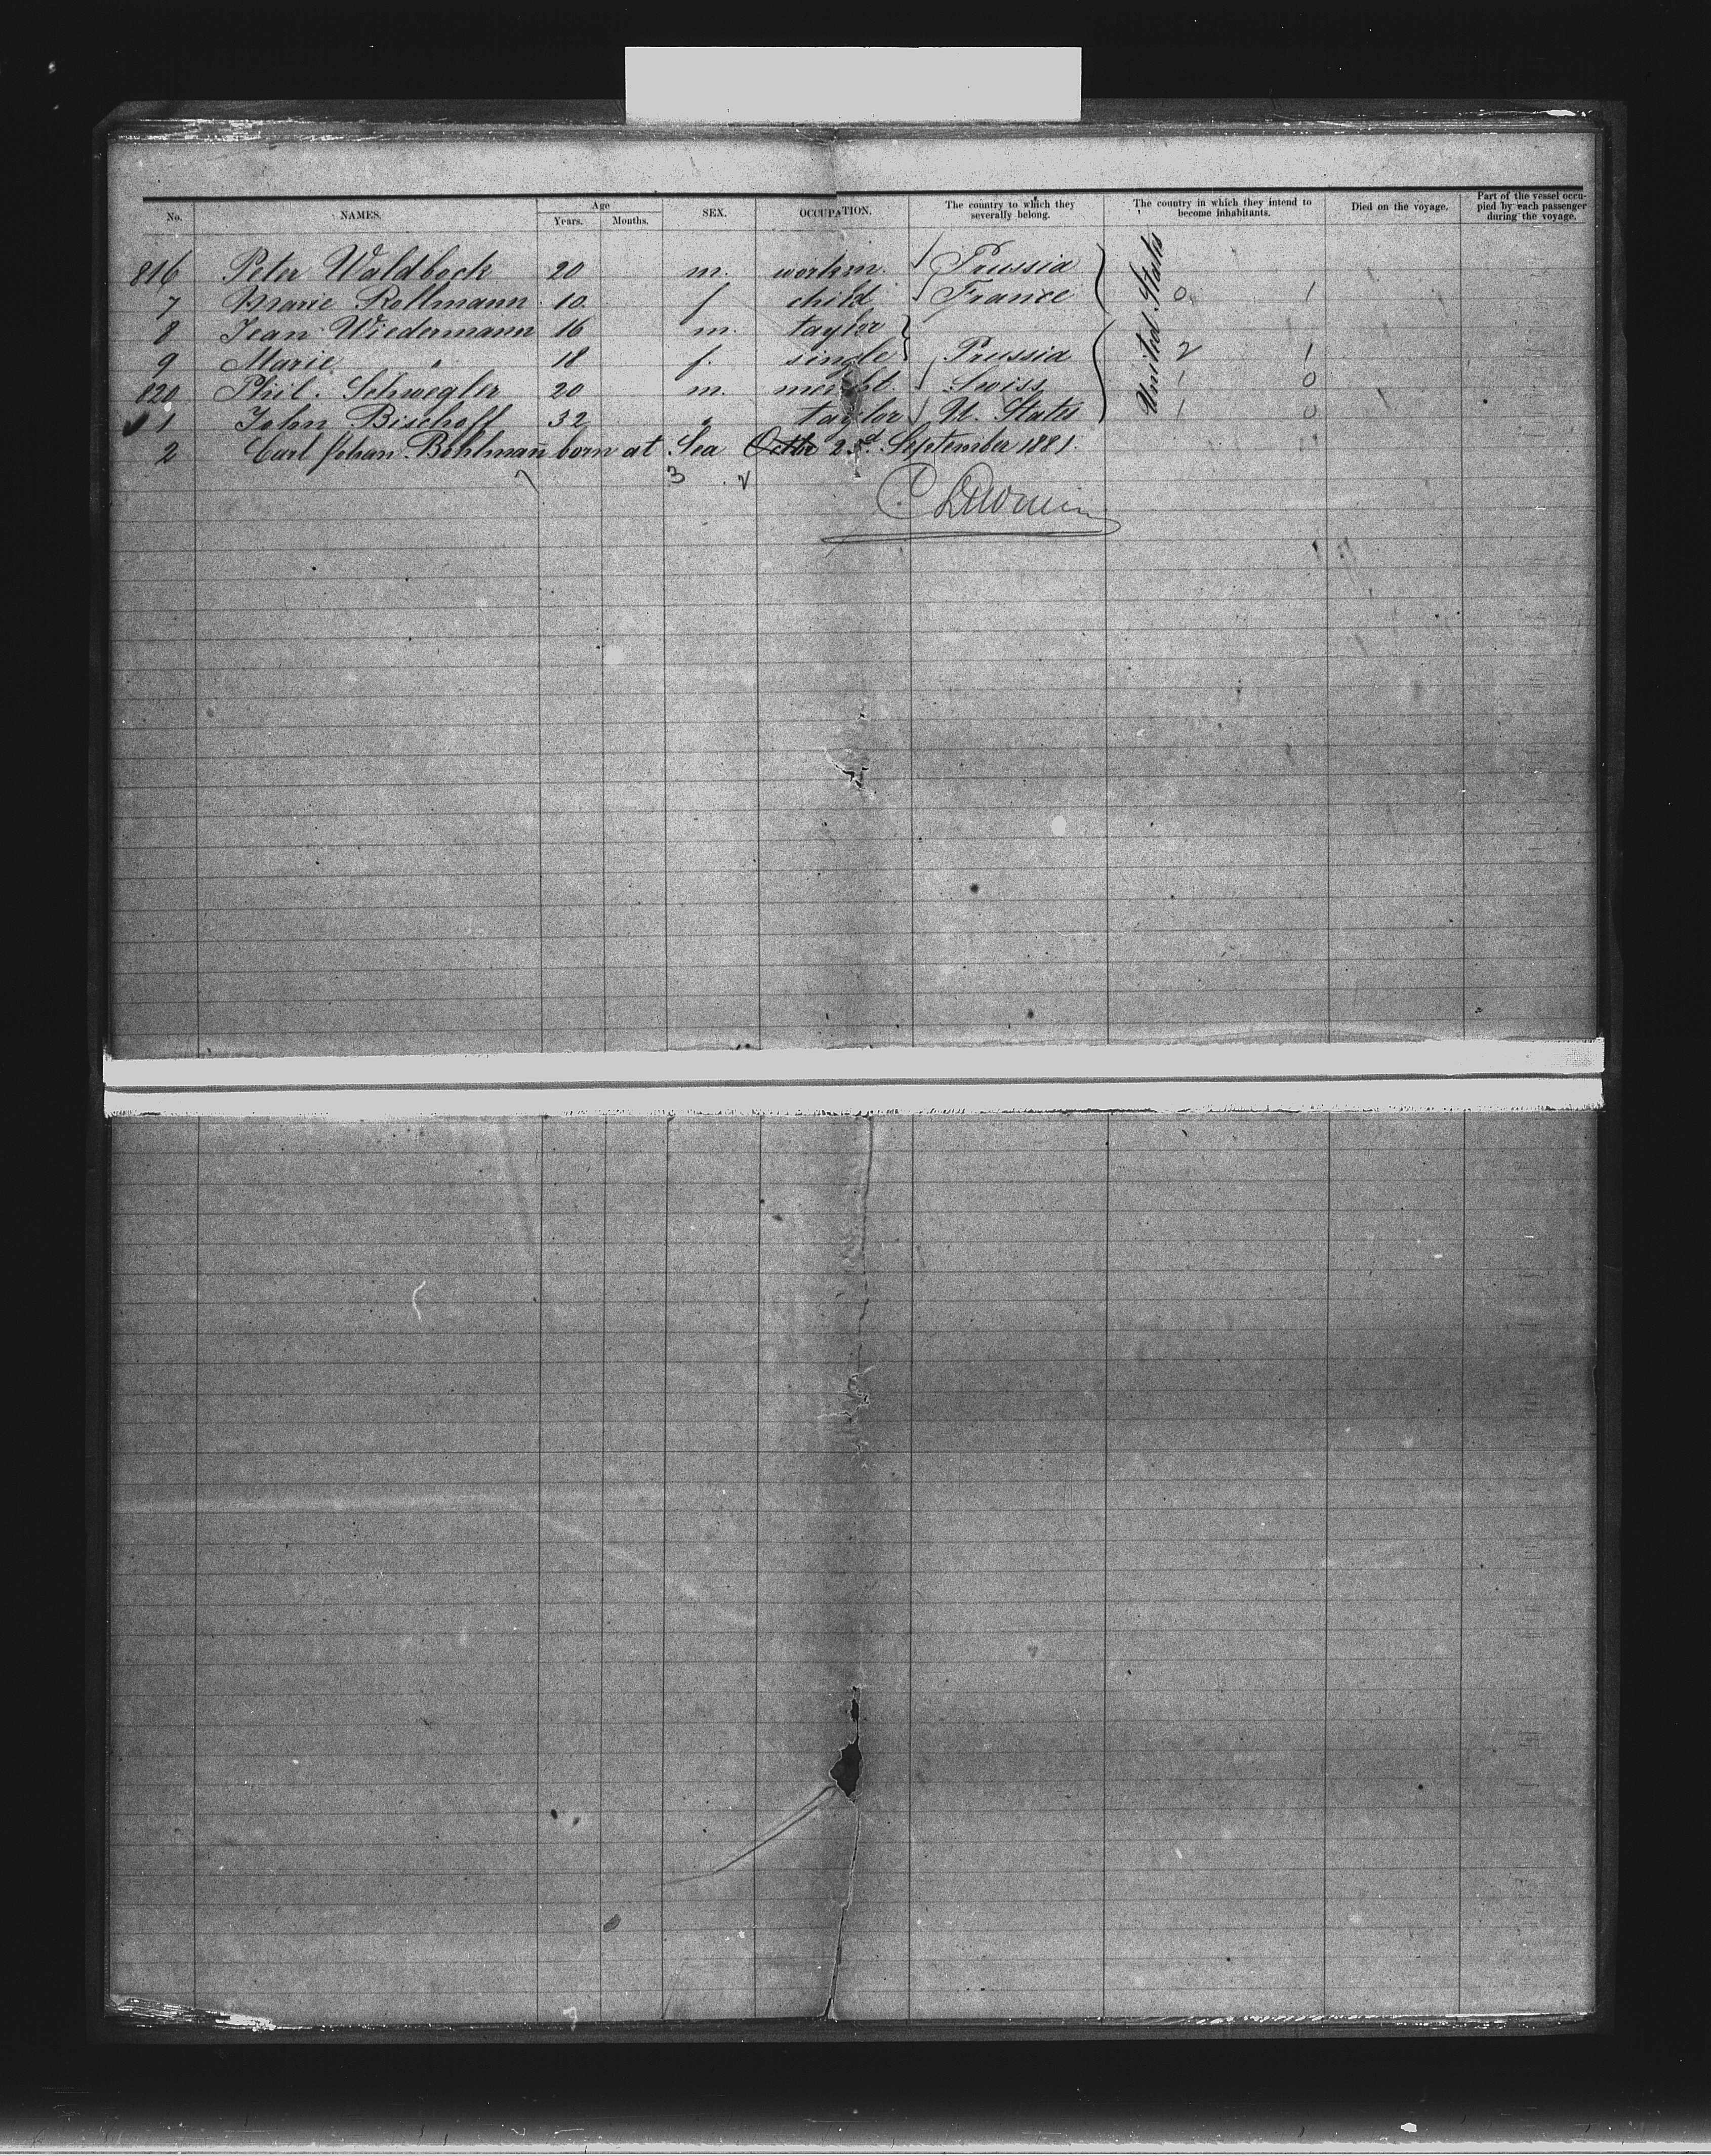 No. NAMES. Age Years. Months. SEX. OCCUPATION. The country to which they severally belong. The country in which they intend to become inhabitants. Died on the voyage. Part of the vessel occupied by each passenger during the voyage.
816 Peter Waldbock 20 m. workm. Prussia
7 Marie Rollmann 10 f child France 0 1
8 Jean Wiedermann 16 m. taylor
9 Marie " 18 f. single Prussia 2 1
820 Phil. Schwegler 20 m. mercht. Swiss 1 0
1 John Bischoff 32 " taylor U. States 1 0
United States
2 Carl Johan Bohlmann born at Sea Octbr 23d. September 1881.
7 3 2